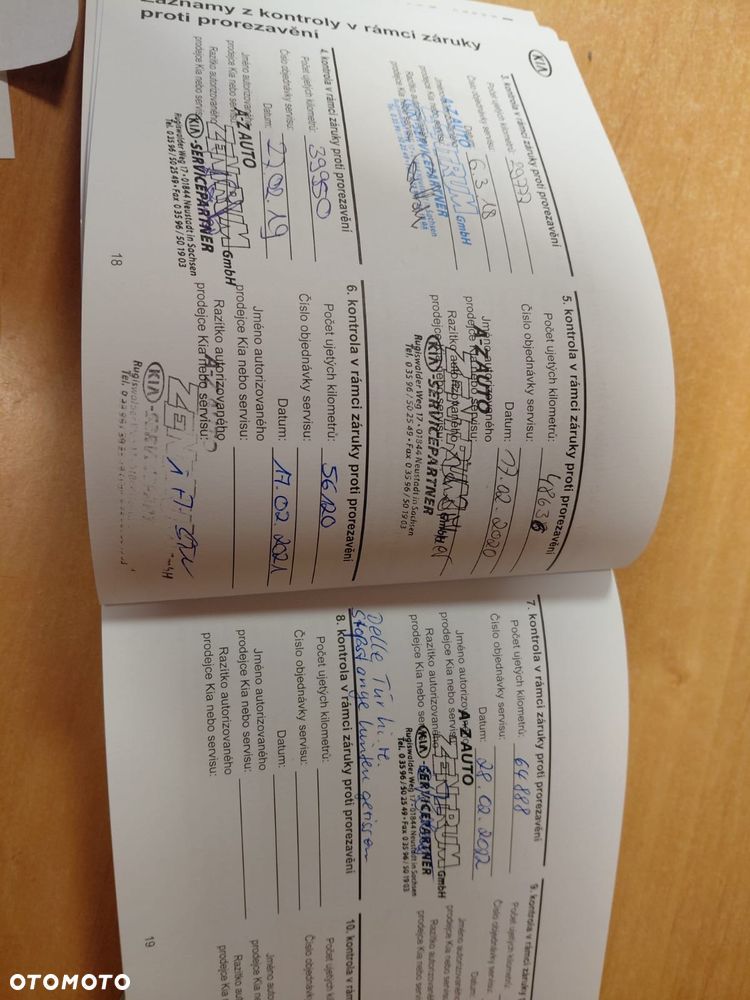 Záznamy z kontroly v rámci záruky
proti prorezavění
KIA
3. kontrola v rámci záruky proti prorezavění
Počet ujetých kilometrů: 29772
Číslo objednávky servisu:
Datum: 6.3.18
Jméno autorizovaného
prodejce Kia nebo servisu:
Razítko autorizovaného
prodejce Kia nebo servisu:
A-Z AUTO
ZENTRUM GmbH
KIA-SERVICEPARTNER
4. kontrola v rámci záruky proti prorezavění
Počet ujetých kilometrů: 39950
Číslo objednávky servisu:
Datum: 19
Jméno autorizovaného
prodejce Kia nebo servisu:
Razítko autorizovaného
prodejce Kia nebo servisu:
A-Z AUTO
ZENTRUM GmbH
KIA-SERVICEPARTNER
Rugiswalder Weg 17 • 01844 Neustadt in Sachsen
Tel. 0 35 96 / 50 25 49 • Fax 0 35 96 / 50 19 03
5. kontrola v rámci záruky proti prorezavění
Počet ujetých kilometrů: 48636
Číslo objednávky servisu:
Datum: 02.2020
Jméno autorizovaného
prodejce Kia nebo servisu:
Razítko autorizovaného
prodejce Kia nebo servisu:
A-Z AUTO
ZENTRUM GmbH
KIA-SERVICEPARTNER
Rugiswalder Weg 17 • 01844 Neustadt in Sachsen
Tel. 0 35 96 / 50 25 49 • Fax 0 35 96 / 50 19 03
6. kontrola v rámci záruky proti prorezavění
Počet ujetých kilometrů: 56120
Číslo objednávky servisu:
Datum: 17.02 2021
Jméno autorizovaného
prodejce Kia nebo servisu:
Razítko autorizovaného
prodejce Kia nebo servisu:
KIA
18
7. kontrola v rámci záruky proti prorezavění
Počet ujetých kilometrů: 64888
Číslo objednávky servisu:
Datum: 28.02.2022
Jméno autorizovaného
prodejce Kia nebo servisu:
Razítko autorizovaného
prodejce Kia nebo servisu:
A-Z AUTO
ZENTRUM GmbH
KIA-SERVICEPARTNER
Rugiswalder Weg 17 • 01844 Neustadt in Sachsen
Tel. 0 35 96 / 50 25 49 • Fax 0 35 96 / 50 19 03
Delle Tür hi. re.
Stoßstange hinten gerissen
8. kontrola v rámci záruky proti prorezavění
Počet ujetých kilometrů:
Číslo objednávky servisu:
Datum:
Jméno autorizovaného
prodejce Kia nebo servisu:
Razítko autorizovaného
prodejce Kia nebo servisu:
9. kontrola v rámci záruky
Počet ujetých kilometrů:
Číslo objednávky servisu:
Datum:
Jméno autorizovaného
prodejce Kia nebo servisu:
Razítko autorizovaného
prodejce Kia nebo
10. kontrola v rámci
Počet ujetých
Číslo objednávky
Datum
Jméno autorizovaného
prodejce Kia nebo
19
OTOMOTO